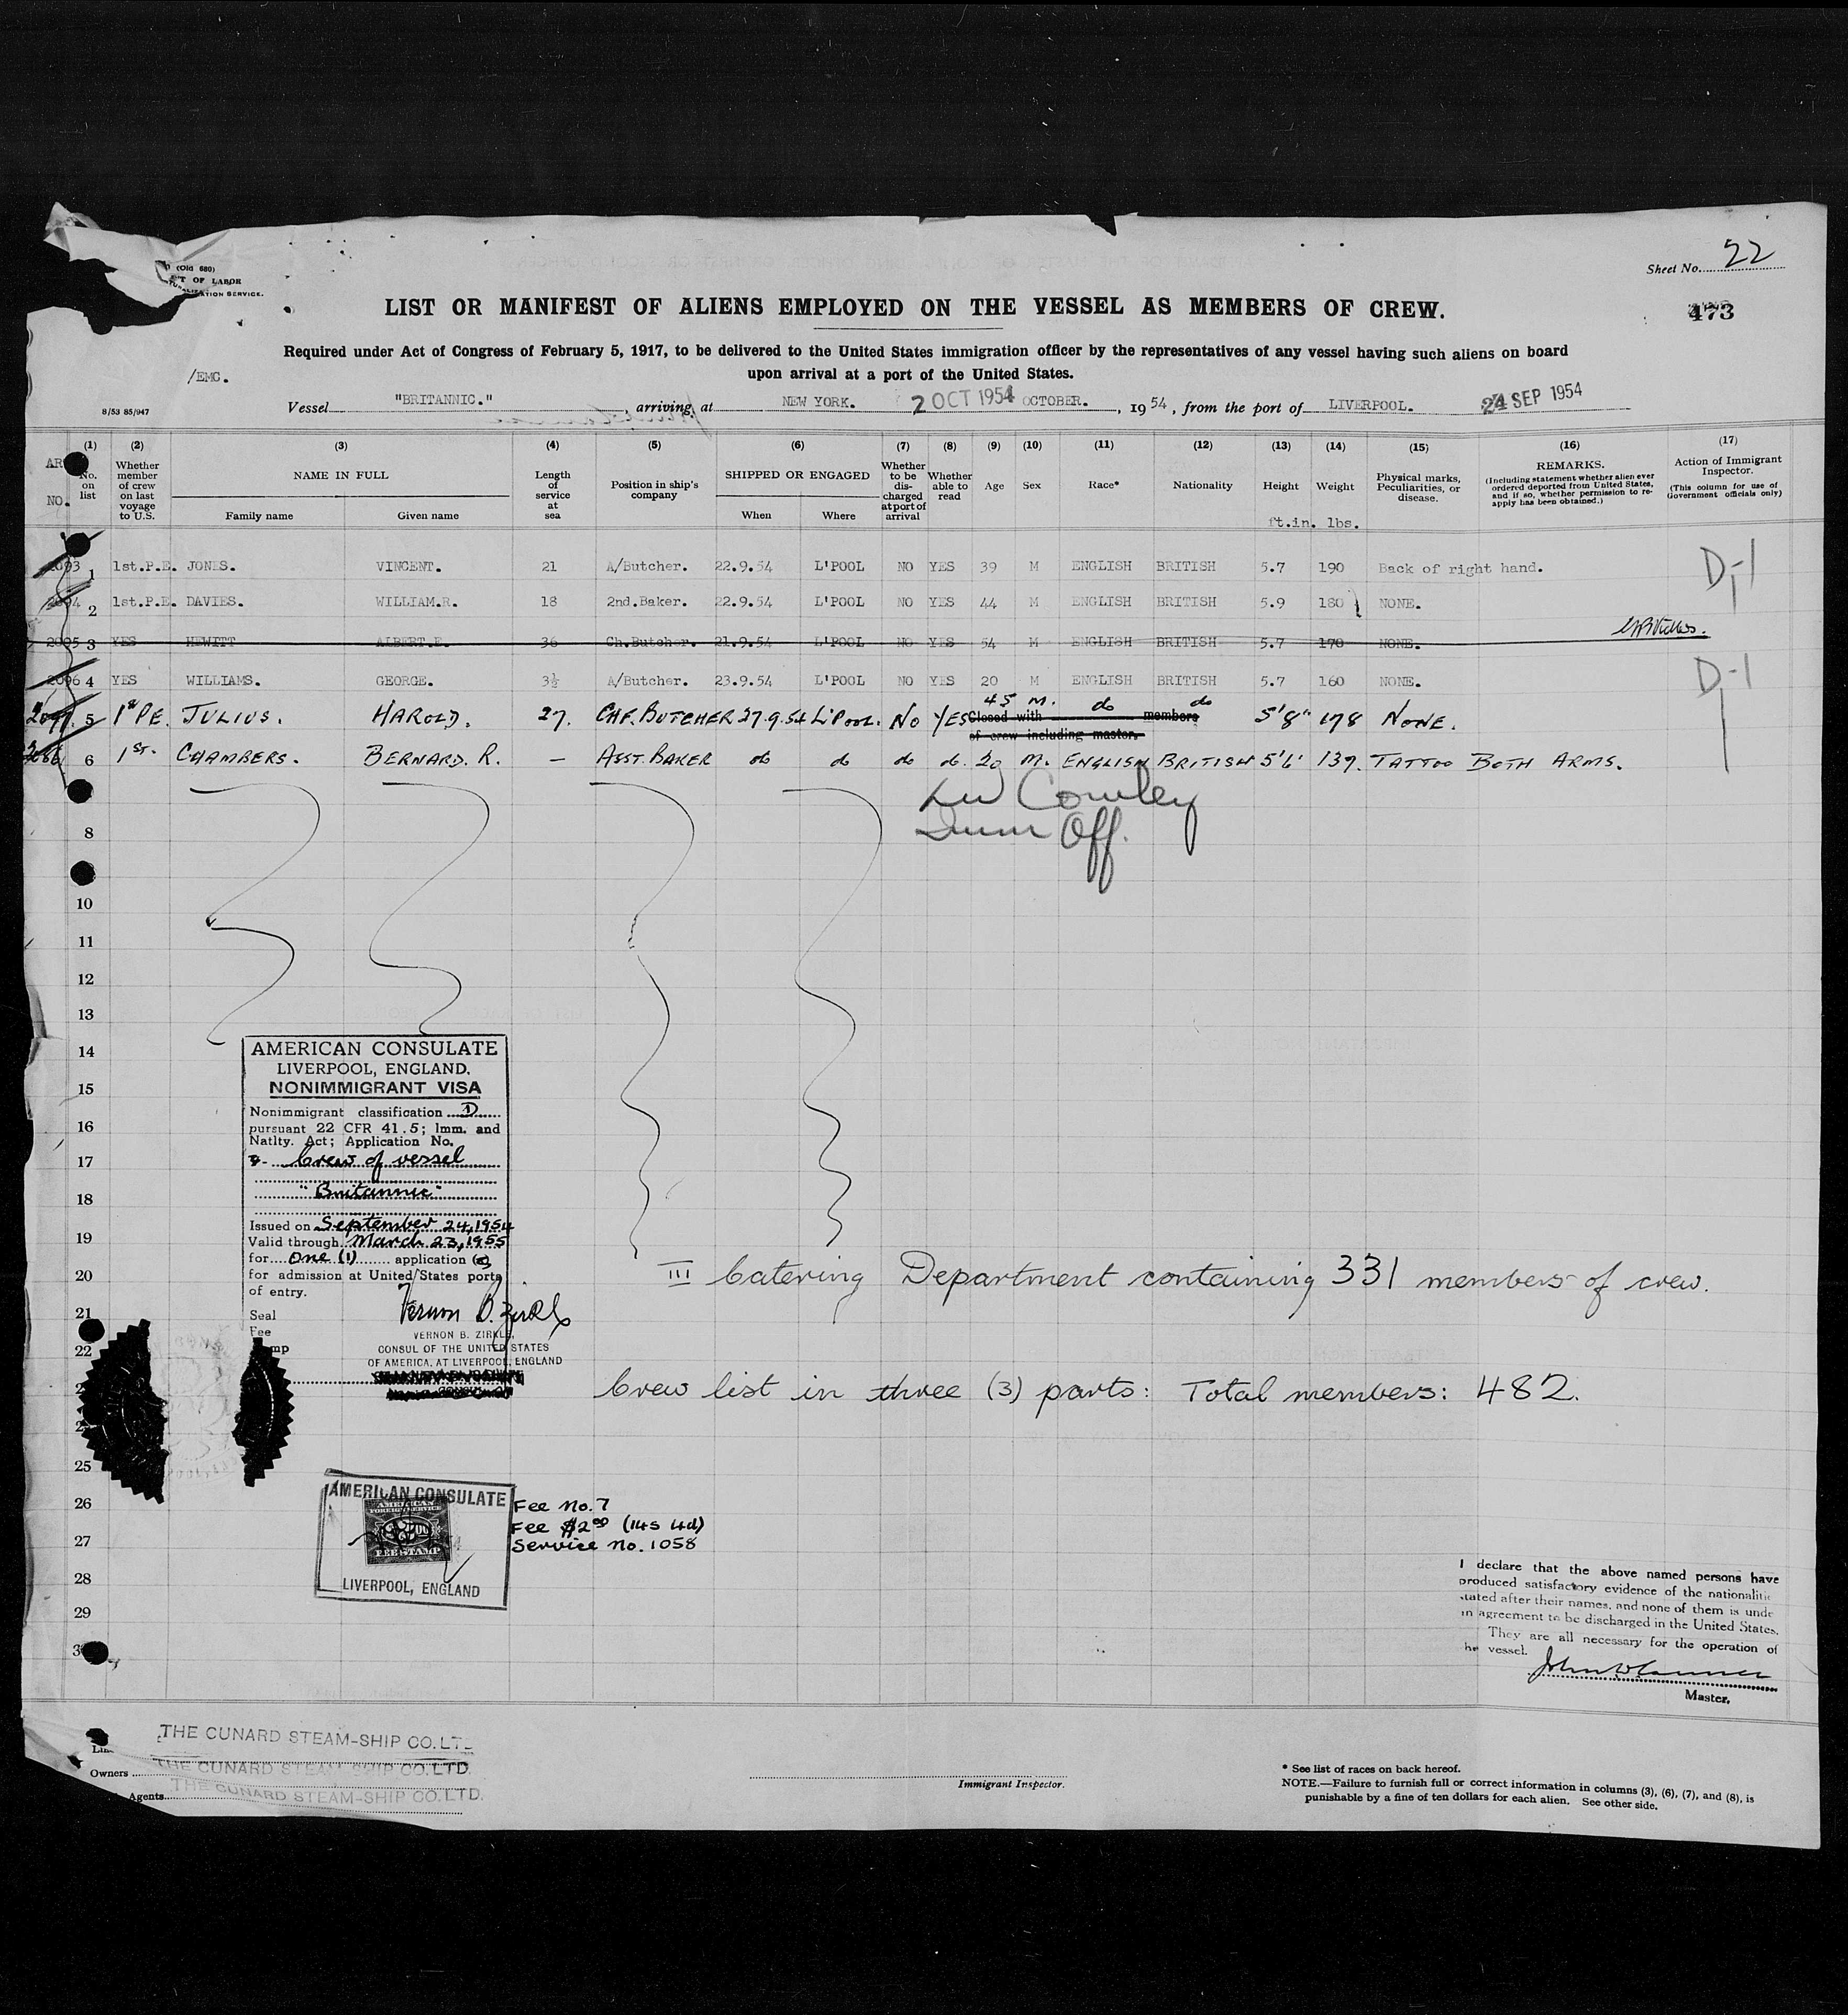 Sheet No. 22
(Old 680)
OF LABOR
NATURALIZATION SERVICE.
LIST OR MANIFEST OF ALIENS EMPLOYED ON THE VESSEL AS MEMBERS OF CREW.
473
Required under Act of Congress of February 5, 1917, to be delivered to the United States immigration officer by the representatives of any vessel having such aliens on board
upon arrival at a port of the United States.
/EMC.
8/53 85/947
Vessel "BRITANNIC." , arriving at NEW YORK. 2 OCT 1954 OCTOBER. , 1954 , from the port of LIVERPOOL. 24 SEP 1954
(1) (2) (3) (4) (5) (6) (7) (8) (9) (10) (11) (12) (13) (14) (15) (16) (17)
AR
NO.
No. on list
Whether member of crew on last voyage to U.S.
NAME IN FULL
Family name
Given name
Length of service at sea
Position in ship's company
SHIPPED OR ENGAGED
When
Where
Whether to be discharged at port of arrival
Whether able to read
Age
Sex
Race*
Nationality
Height
Weight
ft.in. lbs.
Physical marks, Peculiarities, or disease.
REMARKS.
(Including statement whether alien ever ordered deported from United States, and if so, whether permission to re-apply has been obtained.)
Action of Immigrant Inspector.
(This column for use of Government officials only)
2093 1 1st.P.E. JONES. VINCENT. 21 A/Butcher. 22.9.54 L'POOL NO YES 39 M ENGLISH BRITISH 5.7 190 Back of right hand. D-1
2094 2 1st.P.E. DAVIES. WILLIAM.R. 18 2nd.Baker. 22.9.54 L'POOL NO YES 44 M ENGLISH BRITISH 5.9 180 NONE.
2095 3 YES HEWITT ALBERT.E. 36 Ch.Butcher. 21.9.54 L'POOL NO YES 54 M ENGLISH BRITISH 5.7 170 NONE.
2096 4 YES WILLIAMS. GEORGE. 3½ A/Butcher. 23.9.54 L'POOL NO YES 20 M ENGLISH BRITISH 5.7 160 NONE. D-1
2097. 5 1st PE. JULIUS. HAROLD. 27. CHF. BUTCHER 27.9.54 L'POOL. NO YES 45 M. do do 5'8" 178 NONE.
Closed with members
of crew including master.
6 1ST. CHAMBERS. BERNARD. R. — ASST. BAKER do do do do. 20 M. ENGLISH BRITISH 5'6" 139. TATTOO BOTH ARMS.
Cowley
Imm Off.
8
10
11
12
13
14
15
16
17
18
19
20
21
22
25
26
27
28
29
AMERICAN CONSULATE
LIVERPOOL, ENGLAND.
NONIMMIGRANT VISA
Nonimmigrant classification D
pursuant 22 CFR 41.5; Imm. and
Natlty. Act; Application No.
Crew of vessel
"Britannic"
Issued on September 24, 1954
Valid through March 23, 1955
for One (1) application (s)
for admission at United States ports
of entry.
Seal
Fee
Vernon B. Zirkle
VERNON B. ZIRKLE,
CONSUL OF THE UNITED STATES
OF AMERICA, AT LIVERPOOL, ENGLAND
III Catering Department containing 331 members of crew.
Crew list in three (3) parts: Total members: 482.
AMERICAN CONSULATE
AMERICAN
FOREIGN SERVICE
FEE STAMP
LIVERPOOL, ENGLAND
Fee No. 7
Fee $2.00 (14s 4d)
Service No. 1058
I declare that the above named persons have
produced satisfactory evidence of the nationalitie
stated after their names, and none of them is unde
an agreement to be discharged in the United States.
They are all necessary for the operation of
he vessel.
Master.
THE CUNARD STEAM-SHIP CO. LT
Owners THE CUNARD STEAM-SHIP CO. LTD.
Agents THE CUNARD STEAM-SHIP CO. LTD.
Immigrant Inspector.
* See list of races on back hereof.
NOTE.—Failure to furnish full or correct information in columns (3), (6), (7), and (8), is
punishable by a fine of ten dollars for each alien. See other side.